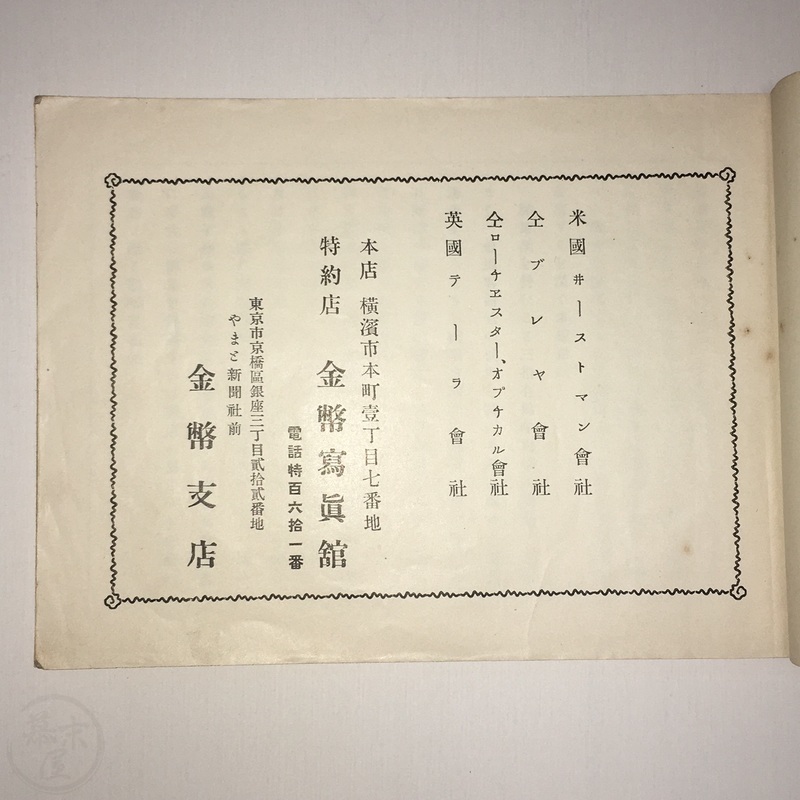 米國井ーストマン會社
仝ブレヤ會社
仝ローケヱスター、オプチカル會社
英國テーラ會社
本店 橫濱市本町壹丁目七番地
特約店 金幣寫眞舘
電話特百六拾一番
東京市京橋區銀座三丁目貳拾貳番地
やまと新聞社前
金幣支店